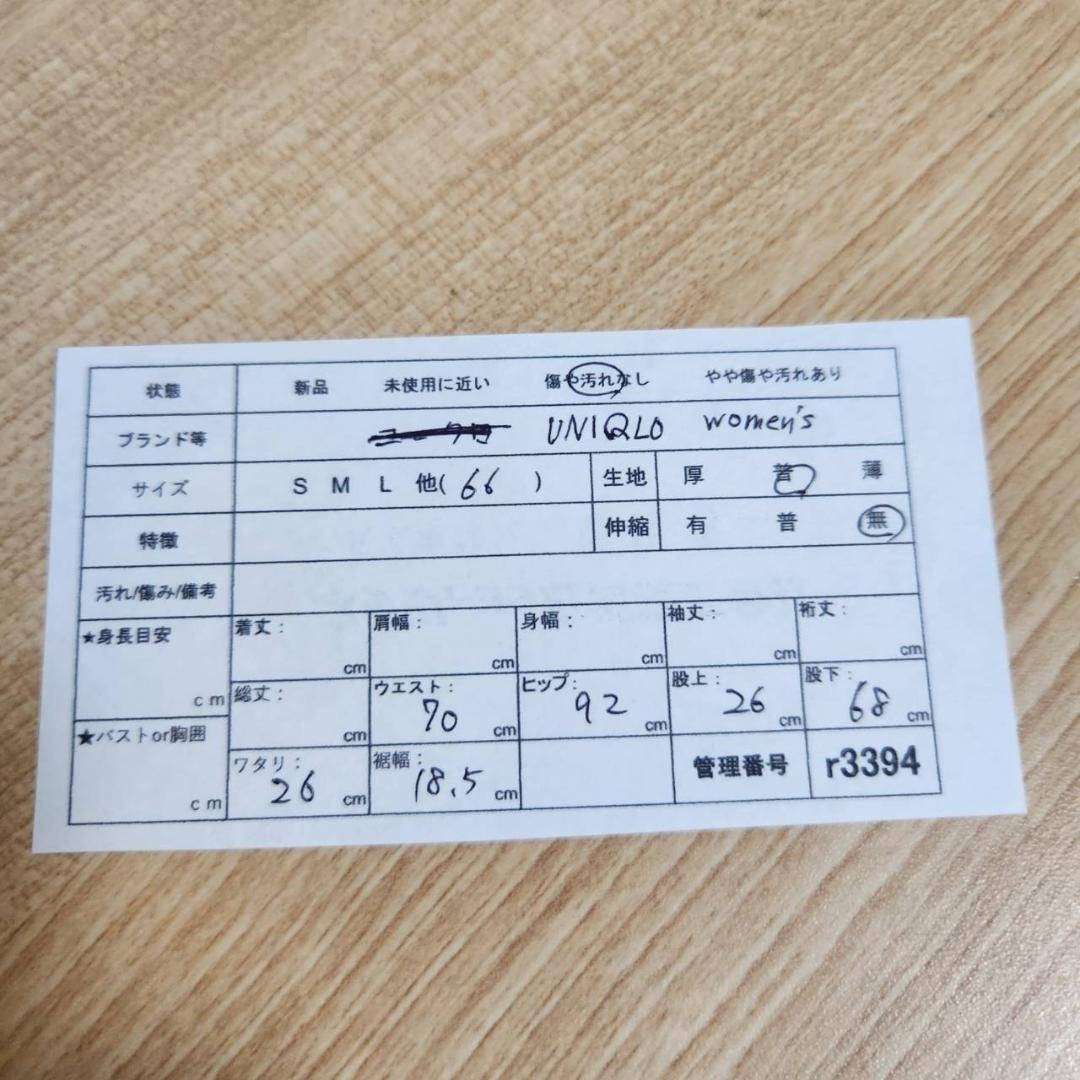 状態 新品 未使用に近い 傷や汚れなし やや傷や汚れあり
ブランド等 ユニクロ UNIQLO women's
サイズ S M L 他( 66 ) 生地 厚 普 薄
特徴 伸縮 有 普 無
汚れ/傷み/備考
★身長目安 cm 着丈: cm 肩幅: cm 身幅: cm 袖丈: cm 裄丈: cm
総丈: cm ウエスト: 70 cm ヒップ: 92 cm 股上: 26 cm 股下: 68 cm
★バストor胸囲 cm ワタリ: 26 cm 裾幅: 18.5 cm 管理番号 r3394